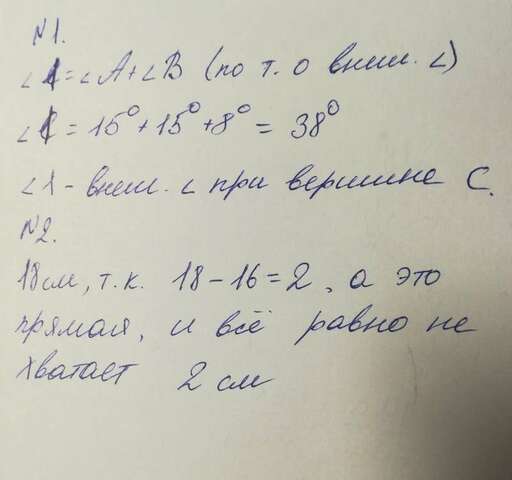 №1.
∠1 = ∠A + ∠B (по т. о внеш. ∠)
∠1 = 15° + 15° + 8° = 38°
∠1 - внеш. ∠ при вершине C.
№2.
18см, т.к. 18 - 16 = 2, а это
прямая, и всё равно не
хватает 2 см